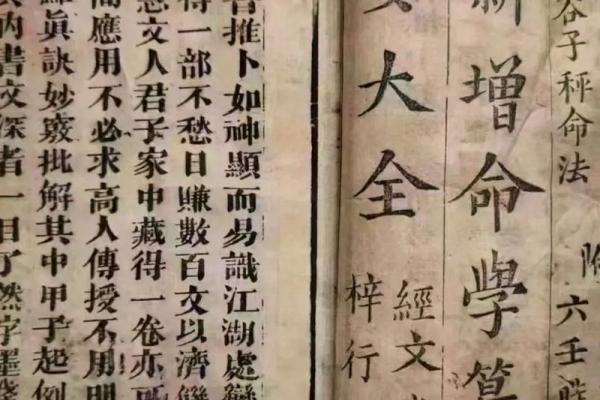 谷子秤命法
六壬時
新增命學算
大全
經文
梓行
推卜如神顯而易識江湖處
得一部不愁日賺數百文以濟變
文人君子家中藏得一卷亦可
應用不必求高人傳授不用明
真訣妙竅批解其中甲子起例
內書文深者一目了然字墨